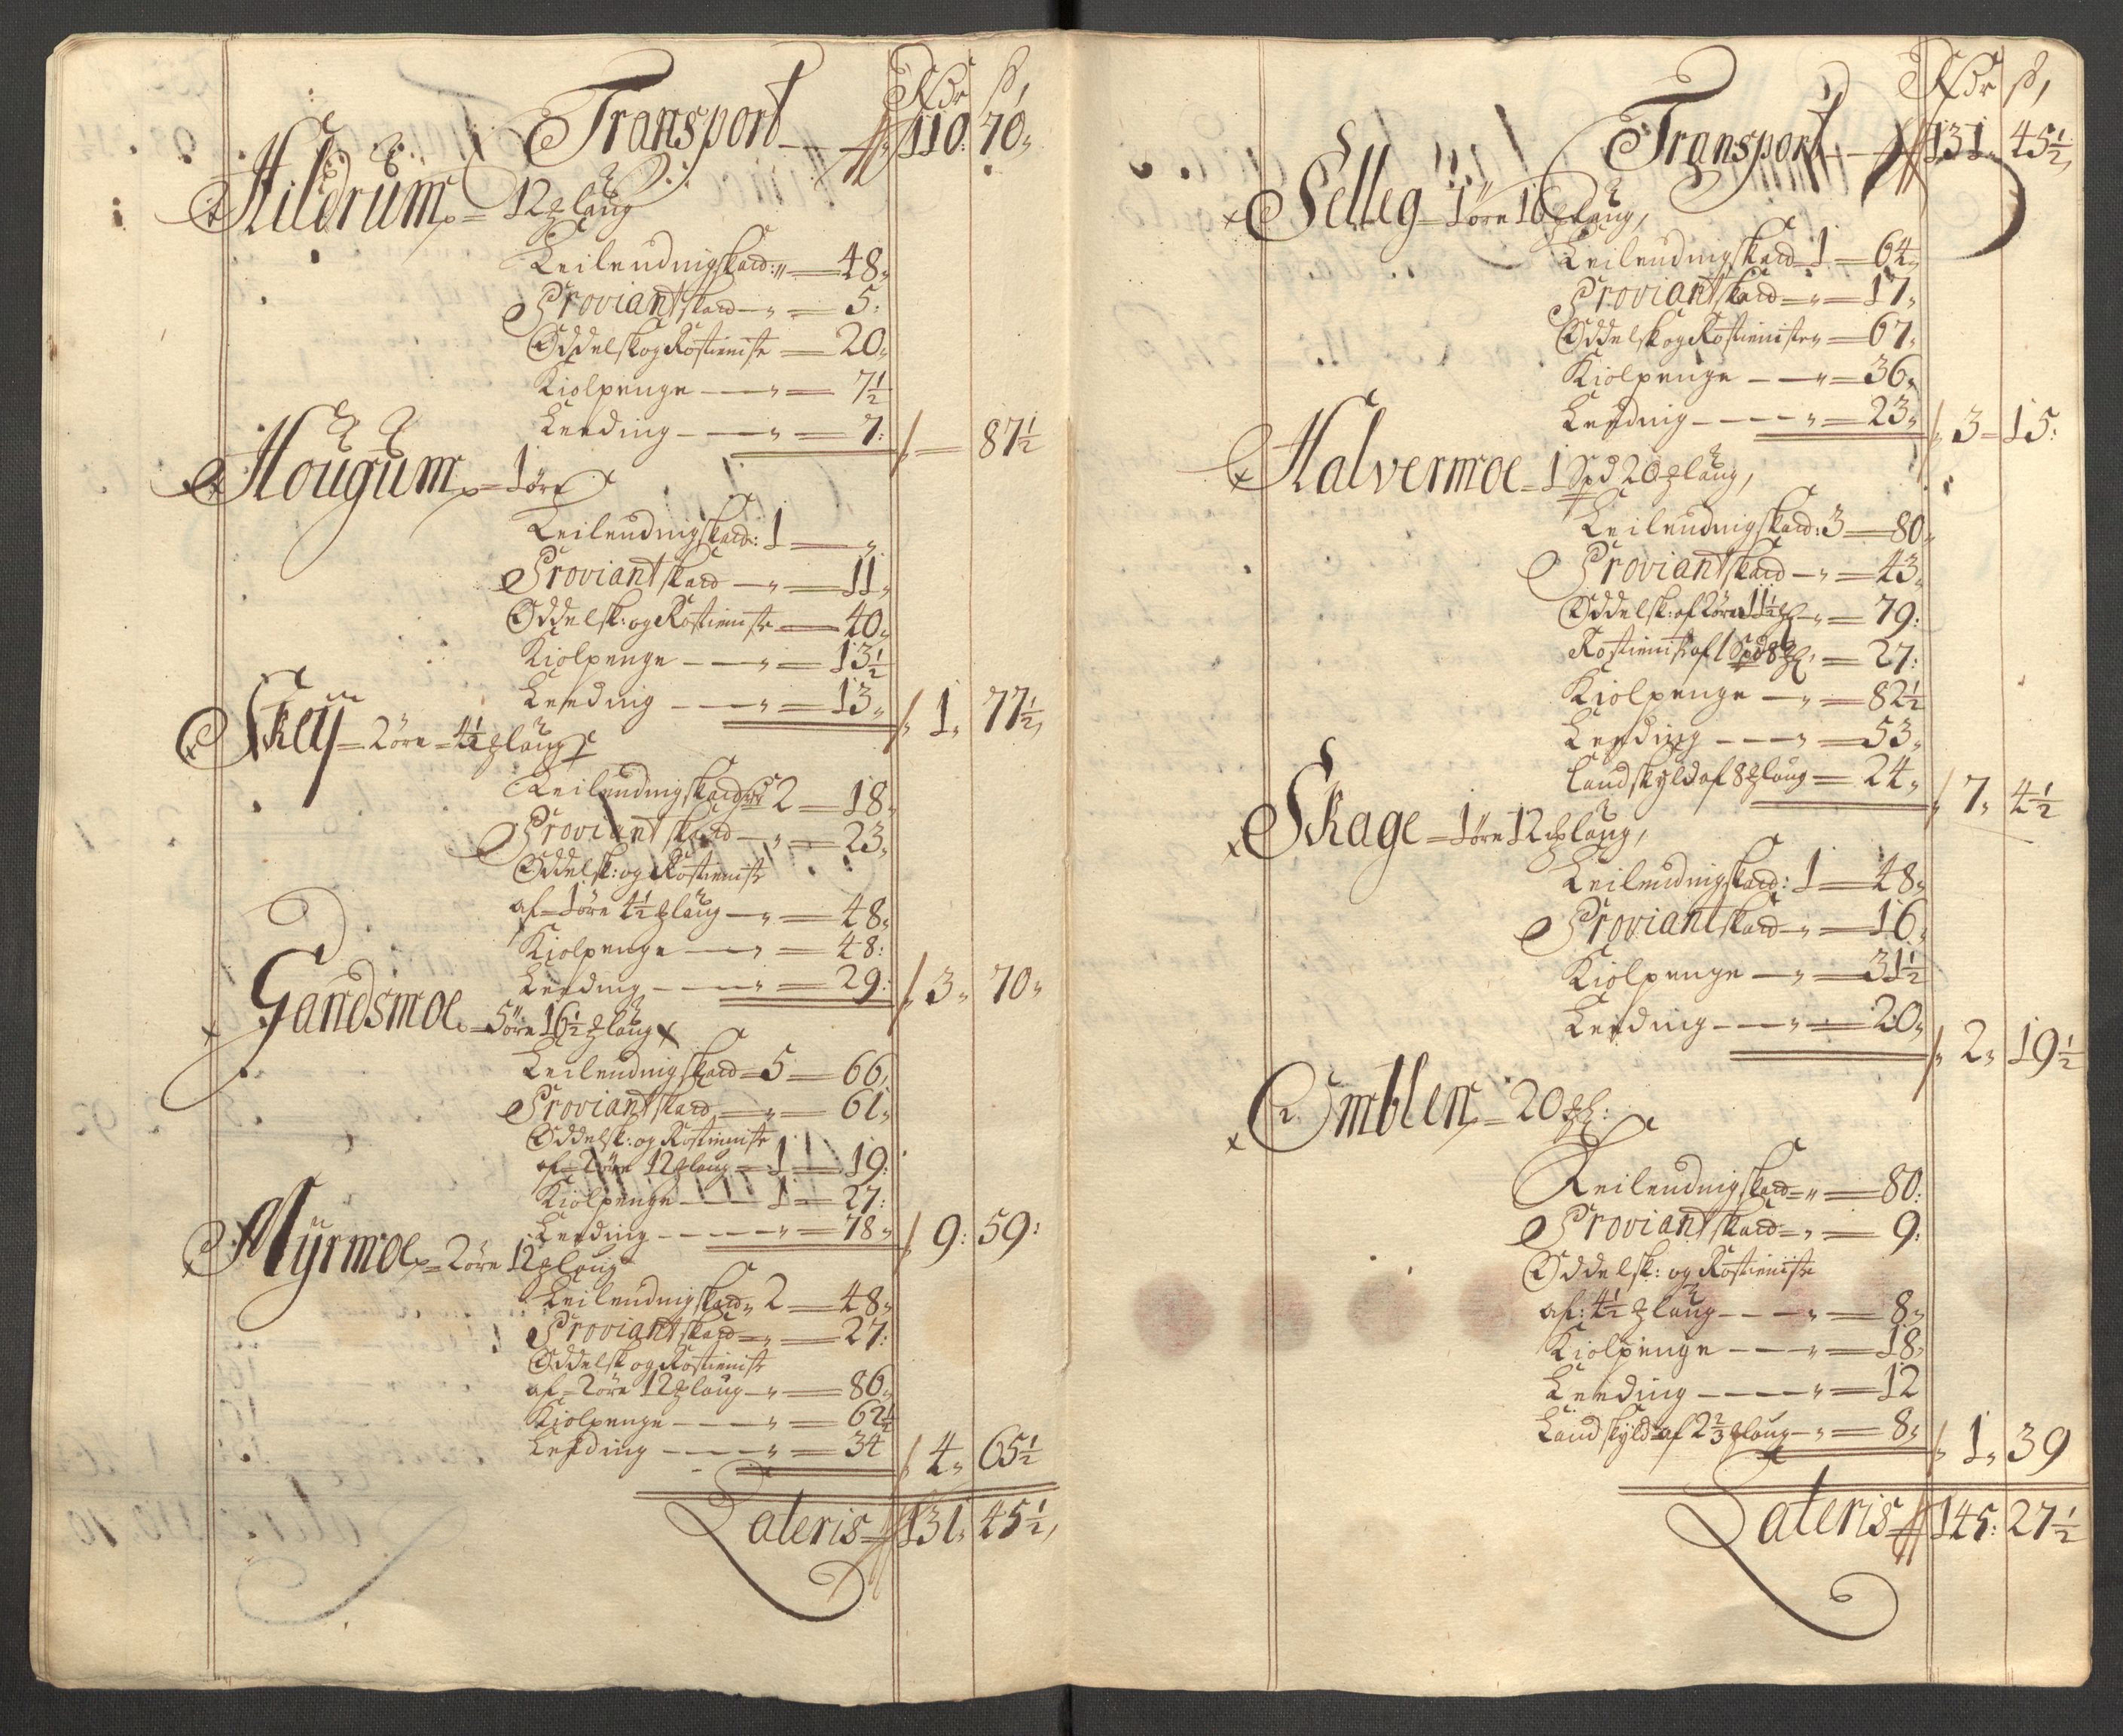 Rdr ß,
Transport — 110: 70„
Hildrum = 12 ℔ laug
Leilendingskatt: „ — 48„
Proviantskatt — „ — 5:
Oddelsk og Rostieniste — 20„
Kiolpenge — „ — 7½
Leeding — „ — 7: — 87½
Hougum = 1 øre
Leilendingskatt: 1 — „
Proviantskatt — „ — 11„
Oddelsk: og Rostieniste — 40„
Kiolpenge — „ — 13½
Leeding — „ — 13„ 1„ 77½
Skey = 2 øre = 4½ ℔ laug
Leilendingskatt 2 — 18„
Proviantskatt — „ — 23„
Oddelsk: og Rostieniste
af = 1 øre 4½ ℔ laug — „ — 48„
Kiolpenge — „ — 48:
Leeding — „ — 29: 3„ 70„
Gandsmoe = 5 øre 16½ ℔ laug
Leilendingskatt = 5 — 66,
Proviantskatt — „ — 61„
Oddelsk: og Rostieniste
af = 2 øre 12 ℔ laug = 1 — 19:
Kiolpenge — 1 — 27:
Leeding — „ — 78„ 9: 59:
Myrmoe = 2 øre 12 ℔ laug
Leilendingskatt„ 2 — 48„
Proviantskatt = „ — 27:
Oddelsk og Rostieniste
af = 2 øre 12 ℔ laug — „ — 80„
Kiolpenge — „ — 62½
Leeding — „ — 34 4„ 65½
Lateris 131„ 45½,
Rdr ß,
Transport — 131„ 45½,
Selleg = 1 øre 16 ℔ laug,
Leilendingskatt = 1 — 64„
Proviantskatt — „ — 17„
Oddelsk og Rostieniste „ — 67„
Kiolpenge — „ — 36„
Leeding — „ — 23„ 3 = 15:
Halvermoe = 1 Spd 20 ℔ laug,
Leilendingskatt: 3 — 80„
Proviantskatt — „ — 43„
Oddelsk: af 2 øre 11½ ℔ — „ — 79:
Rostieniste af 1 Spd 8 ℔ „ — 27:
Kiolpenge — „ — 82½
Leeding — „ — 53„
Landskyld af 8 ℔ laug — 24„ 7„ 4½
Skage = 1 øre 12 ℔ laug,
Leilendingskatt: 1 — 48„
Proviantskatt — „ — 16„
Kiolpenge — „ — 31½
Leeding — „ — 20„ 2„ 19½
Omblen = 20 ℔:
Leilendingskatt = „ — 80:
Proviantskatt = „ — 9:
Oddelsk: og Rostieniste
af: 4½ ℔ laug — „ — 8„
Kiolpenge — „ — 18„
Leeding — „ — 12
Landskyld af 2⅔ ℔ laug — „ — 8„ 1„ 39
Lateris 145: 27½